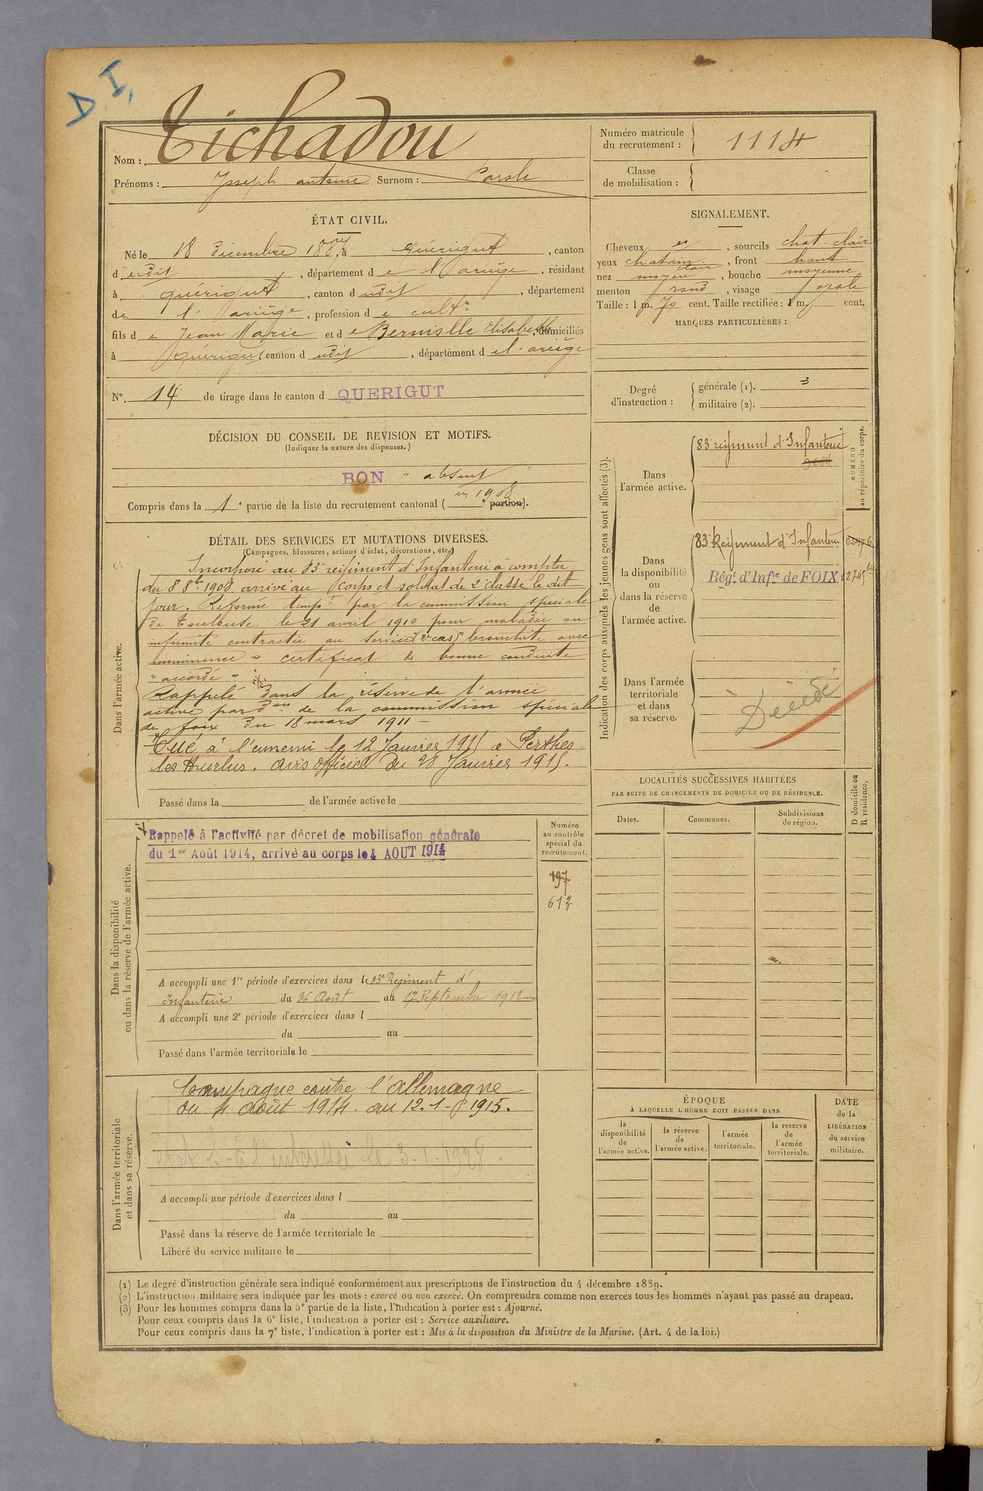 D. I.
Nom : Tichadou
Prénoms : Joseph antoine Surnom :
Numéro matricule du recrutement : 1114
Classe de mobilisation :
ÉTAT CIVIL.
Né le 18 Décembre 188 , à Quérigut , canton
d udit , département d e l'ariège , résidant
à Quérigut , canton d udit , département
de l'ariège , profession d e cultr
fils d e Jean Marie et d e Elisabeth , domiciliés
à Quérigut canton d udit , département d e l'ariège
N° 14 de tirage dans le canton d QUERIGUT
DÉCISION DU CONSEIL DE REVISION ET MOTIFS.
(Indiquer la nature des dispenses.)
BON absent
en 1908
Compris dans la 1e partie de la liste du recrutement cantonal ( e portion).
SIGNALEMENT.
Cheveux , sourcils chat. clair
yeux chatain clair , front haut
nez moyen , bouche moyenne
menton rond , visage ovale
Taille : 1 m. 70 cent. Taille rectifiée : 1 m. cent.
MARQUES PARTICULIÈRES :
Degré d'instruction : générale (1). 3
militaire (2).
Indication des corps auxquels les jeunes gens sont affectés (3).
NUMÉRO au répertoire du corps.
Dans l'armée active. 83e régiment d'Infanterie
Dans la disponibilité ou dans la réserve de l'armée active. 83e Régiment d'Infanterie
Régt d'Infie de FOIX
Dans l'armée territoriale et dans sa réserve. Décédé
DÉTAIL DES SERVICES ET MUTATIONS DIVERSES.
(Campagnes, blessures, actions d'éclat, décorations, etc.)
Dans l'armée active.
Incorporé au 83e régiment d'Infanterie à compter
du 8 8bre 1908 arrivé au Corps et soldat de 2e classe le dit
jour. Réformé tempt par la commission spéciale
de Toulouse le 21 avril 1910 pour maladie ou
infirmité contractée au service (2e cas) "bronchite avec
imminence" certificat de bonne conduite
"accordé"
Rappelé dans la réserve de l'armée
active par don de la commission spéciale
de foix du 18 mars 1911 -
Tué à l'ennemi le 12 Janvier 1915 à Perthes
les Hurlus. avis officiel du 28 Janvier 1915.
Passé dans la de l'armée active le
Dans la disponibilité ou dans la réserve de l'armée active.
Rappelé à l'activité par décret de mobilisation générale
du 1er Août 1914, arrivé au corps le 4 AOUT 1914
Numéro au contrôle spécial du recrutement.
197
612
A accompli une 1re période d'exercices dans le 83e Régiment d'
Infanterie du 26 Août au 17 Septembre 1912
A accompli une 2e période d'exercices dans l
du au
Passé dans l'armée territoriale le
LOCALITÉS SUCCESSIVES HABITÉES
PAR SUITE DE CHANGEMENTS DE DOMICILE OU DE RÉSIDENCE.
Dates. Communes. Subdivisions de région. D domicile ou R résidence.
Dans l'armée territoriale et dans sa réserve.
Campagne contre l'Allemagne
du 4 août 1914. au 12-1-1915.
A accompli une période d'exercices dans l
du au
Passé dans la réserve de l'armée territoriale le
Libéré du service militaire le
ÉPOQUE
À LAQUELLE L'HOMME DOIT PASSER DANS
la disponibilité de l'armée active. la réserve de l'armée active. l'armée territoriale. la réserve de l'armée territoriale.
DATE de la LIBÉRATION du service militaire.
(1) Le degré d'instruction générale sera indiqué conformément aux prescriptions de l'instruction du 4 décembre 1889.
(2) L'instruction militaire sera indiquée par les mots : exercé ou non exercé. On comprendra comme non exercés tous les hommes n'ayant pas passé au drapeau.
(3) Pour les hommes compris dans la 5e partie de la liste, l'indication à porter est : Ajourné.
Pour ceux compris dans la 6e liste, l'indication à porter est : Service auxiliaire.
Pour ceux compris dans la 7e liste, l'indication à porter est : Mis à la disposition du Ministre de la Marine. (Art. 4 de la loi.)